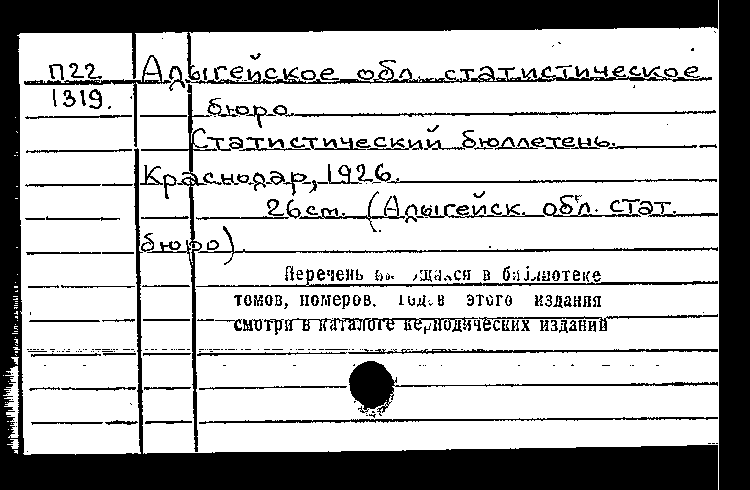 П22 Адыгейское обл. статистическое
1319. бюро
Статистический бюллетень.
Краснодар, 1926.
26cm. (Адыгейск. обл. стат.
бюро).
Перечень в библиотеке
томов, номеров, годов этого издания
смотри в каталоге периодических изданий